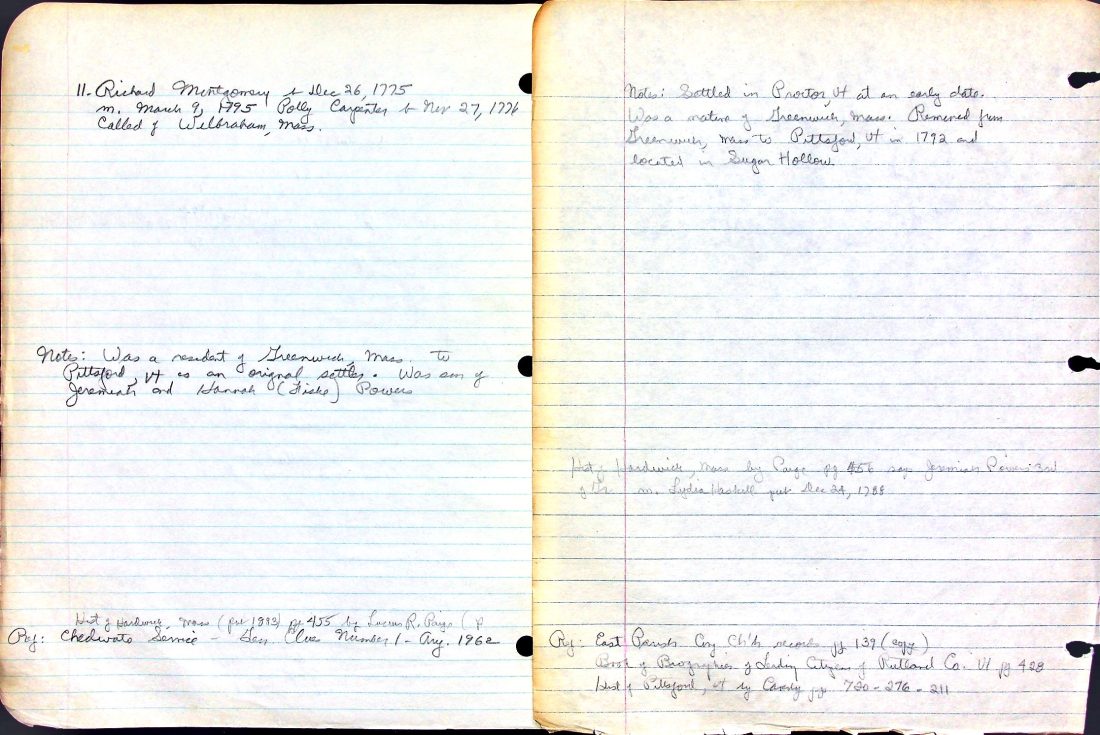 11- Richard Montgomery b Dec 26, 1775
m. March 9, 1795 Polly Carpenter b Nov 27, 1776
Called of Wilbraham, Mass.
Notes: Was a resident of Greenwich, Mass. to
Pittsford, Vt as an orignal settler. Was son of
Jeremiah and Hannah (Fiske) Powers
Hist of Hardwick, Mass (pub 1883) pg 455 by Lucius R. Paige (p
Ref: Chedwato Service - Gen. Clue Number 1 - Aug. 1962
Notes: Settled in Proctor, Vt at an early date.
Was a native of Greenwich, Mass. Removed from
Greenwich, Mass to Pittsford, Vt in 1792 and
located in Sugar Hollow
Hist of Hardwick, Mass by Paige pg 456 says Jeremiah Powers 3rd
of Gr. m. Lydia Haskell pub Dec 24, 1788
Ref: East Parish Cong Ch'h records pg 139 (copy)
Book of Biographies of Leading Citizens of Rutland Co. Vt pg 428
Hist of Pittsford, Vt by Caverly pgs 720-276-211